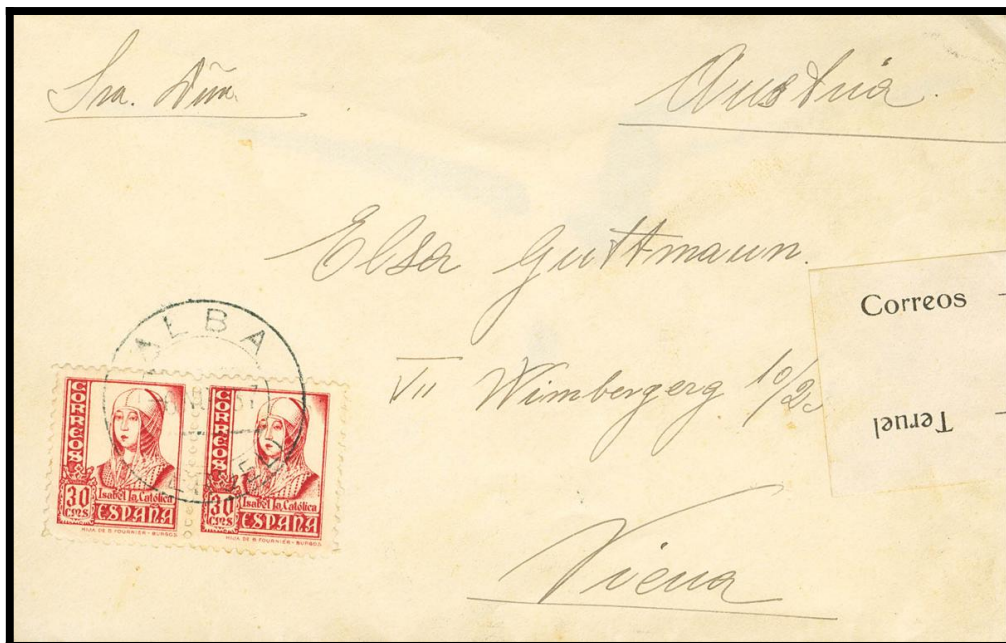 Sra. Dña.
Austria.
Elsa Guttmann.
VII Wimbergerg 10/25
Viena
Correos
Teruel
ALBA
CORREOS
30
CTMS
Isabel la Católica
ESPAÑA
HIJA DE B. FOURNIER-BURGOS
CORREOS
30
CTMS
Isabel la Católica
ESPAÑA
HIJA DE B. FOURNIER-BURGOS